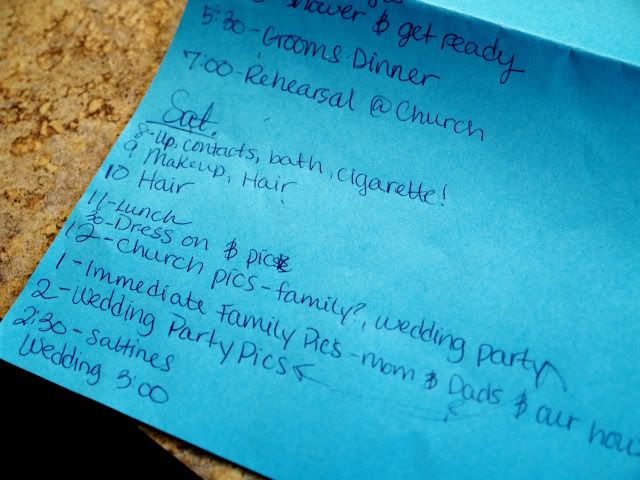 shower $ get ready
5:30-Grooms Dinner
7:00-Rehearsal @ Church
Sat.
8-Up, contacts, bath, cigarette!
9 Makeup, Hair
10 Hair
11-Lunch
30-Dress on $ pics
12-Church pics-family?, wedding party
1-Immediate Family Pics-mom $ Dads $ our
2-Wedding Party Pics
2:30-saltines
Wedding 3:00